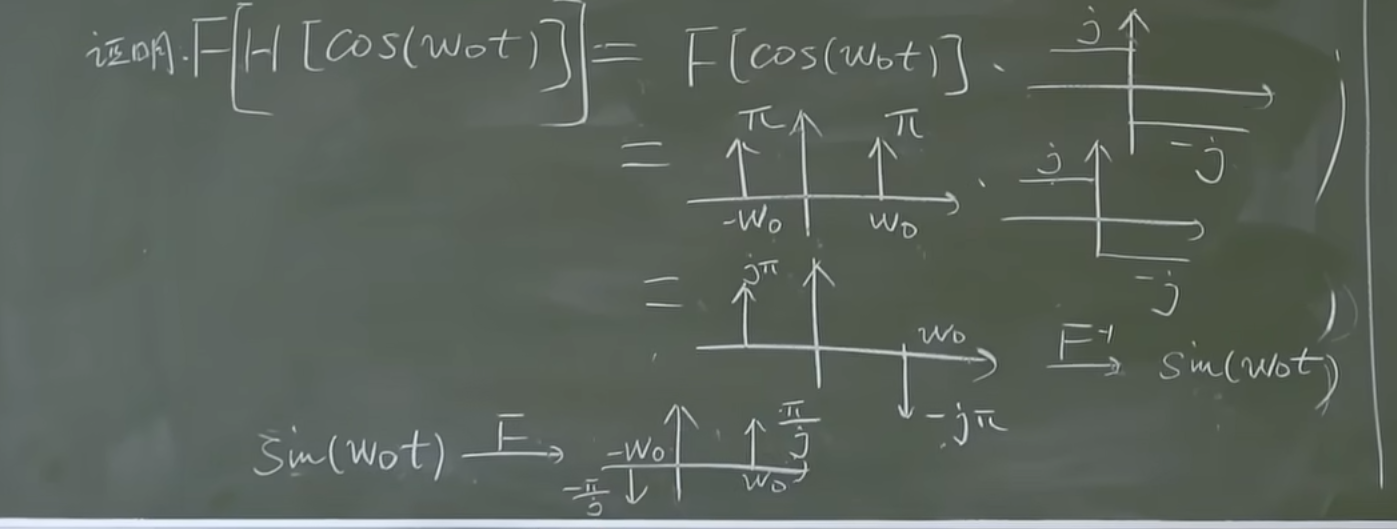 证明.F[H[cos(w₀t)]]= F[cos(w₀t)]. j -j
= π π -w₀ w₀ . j -j
= jπ w₀ -jπ F⁻¹ sin(w₀t)
sin(w₀t) F -w₀ -π/j π/j w₀